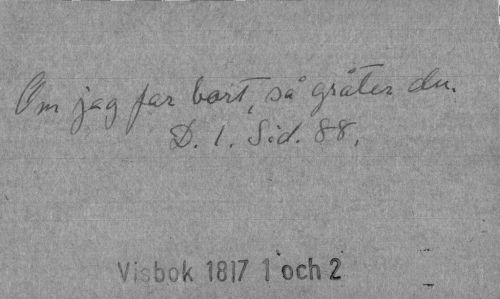 Om jag far bort, så gråter du.
D. 1. Sid. 88.
Visbok 1817 1 och 2